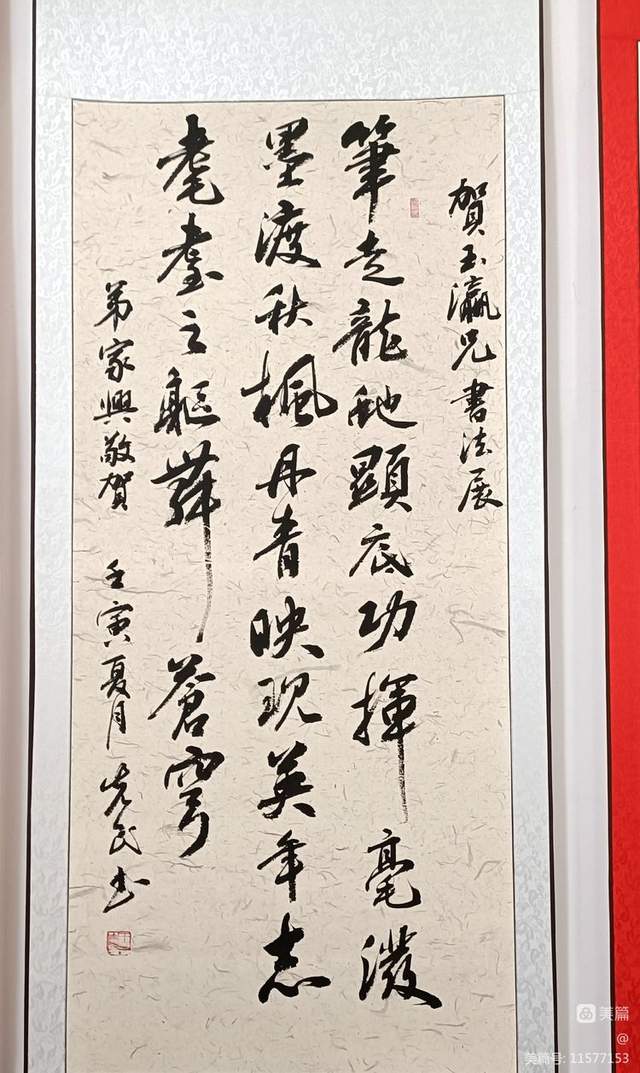 賀玉瀛兄書法展
筆走龍虵顯底功揮毫潑
墨渡秋楓丹青映現英年志
耄耋之軀舞蒼穹
弟家興敬賀 壬寅夏月 先民书
美篇
@
美篇号: 11577153